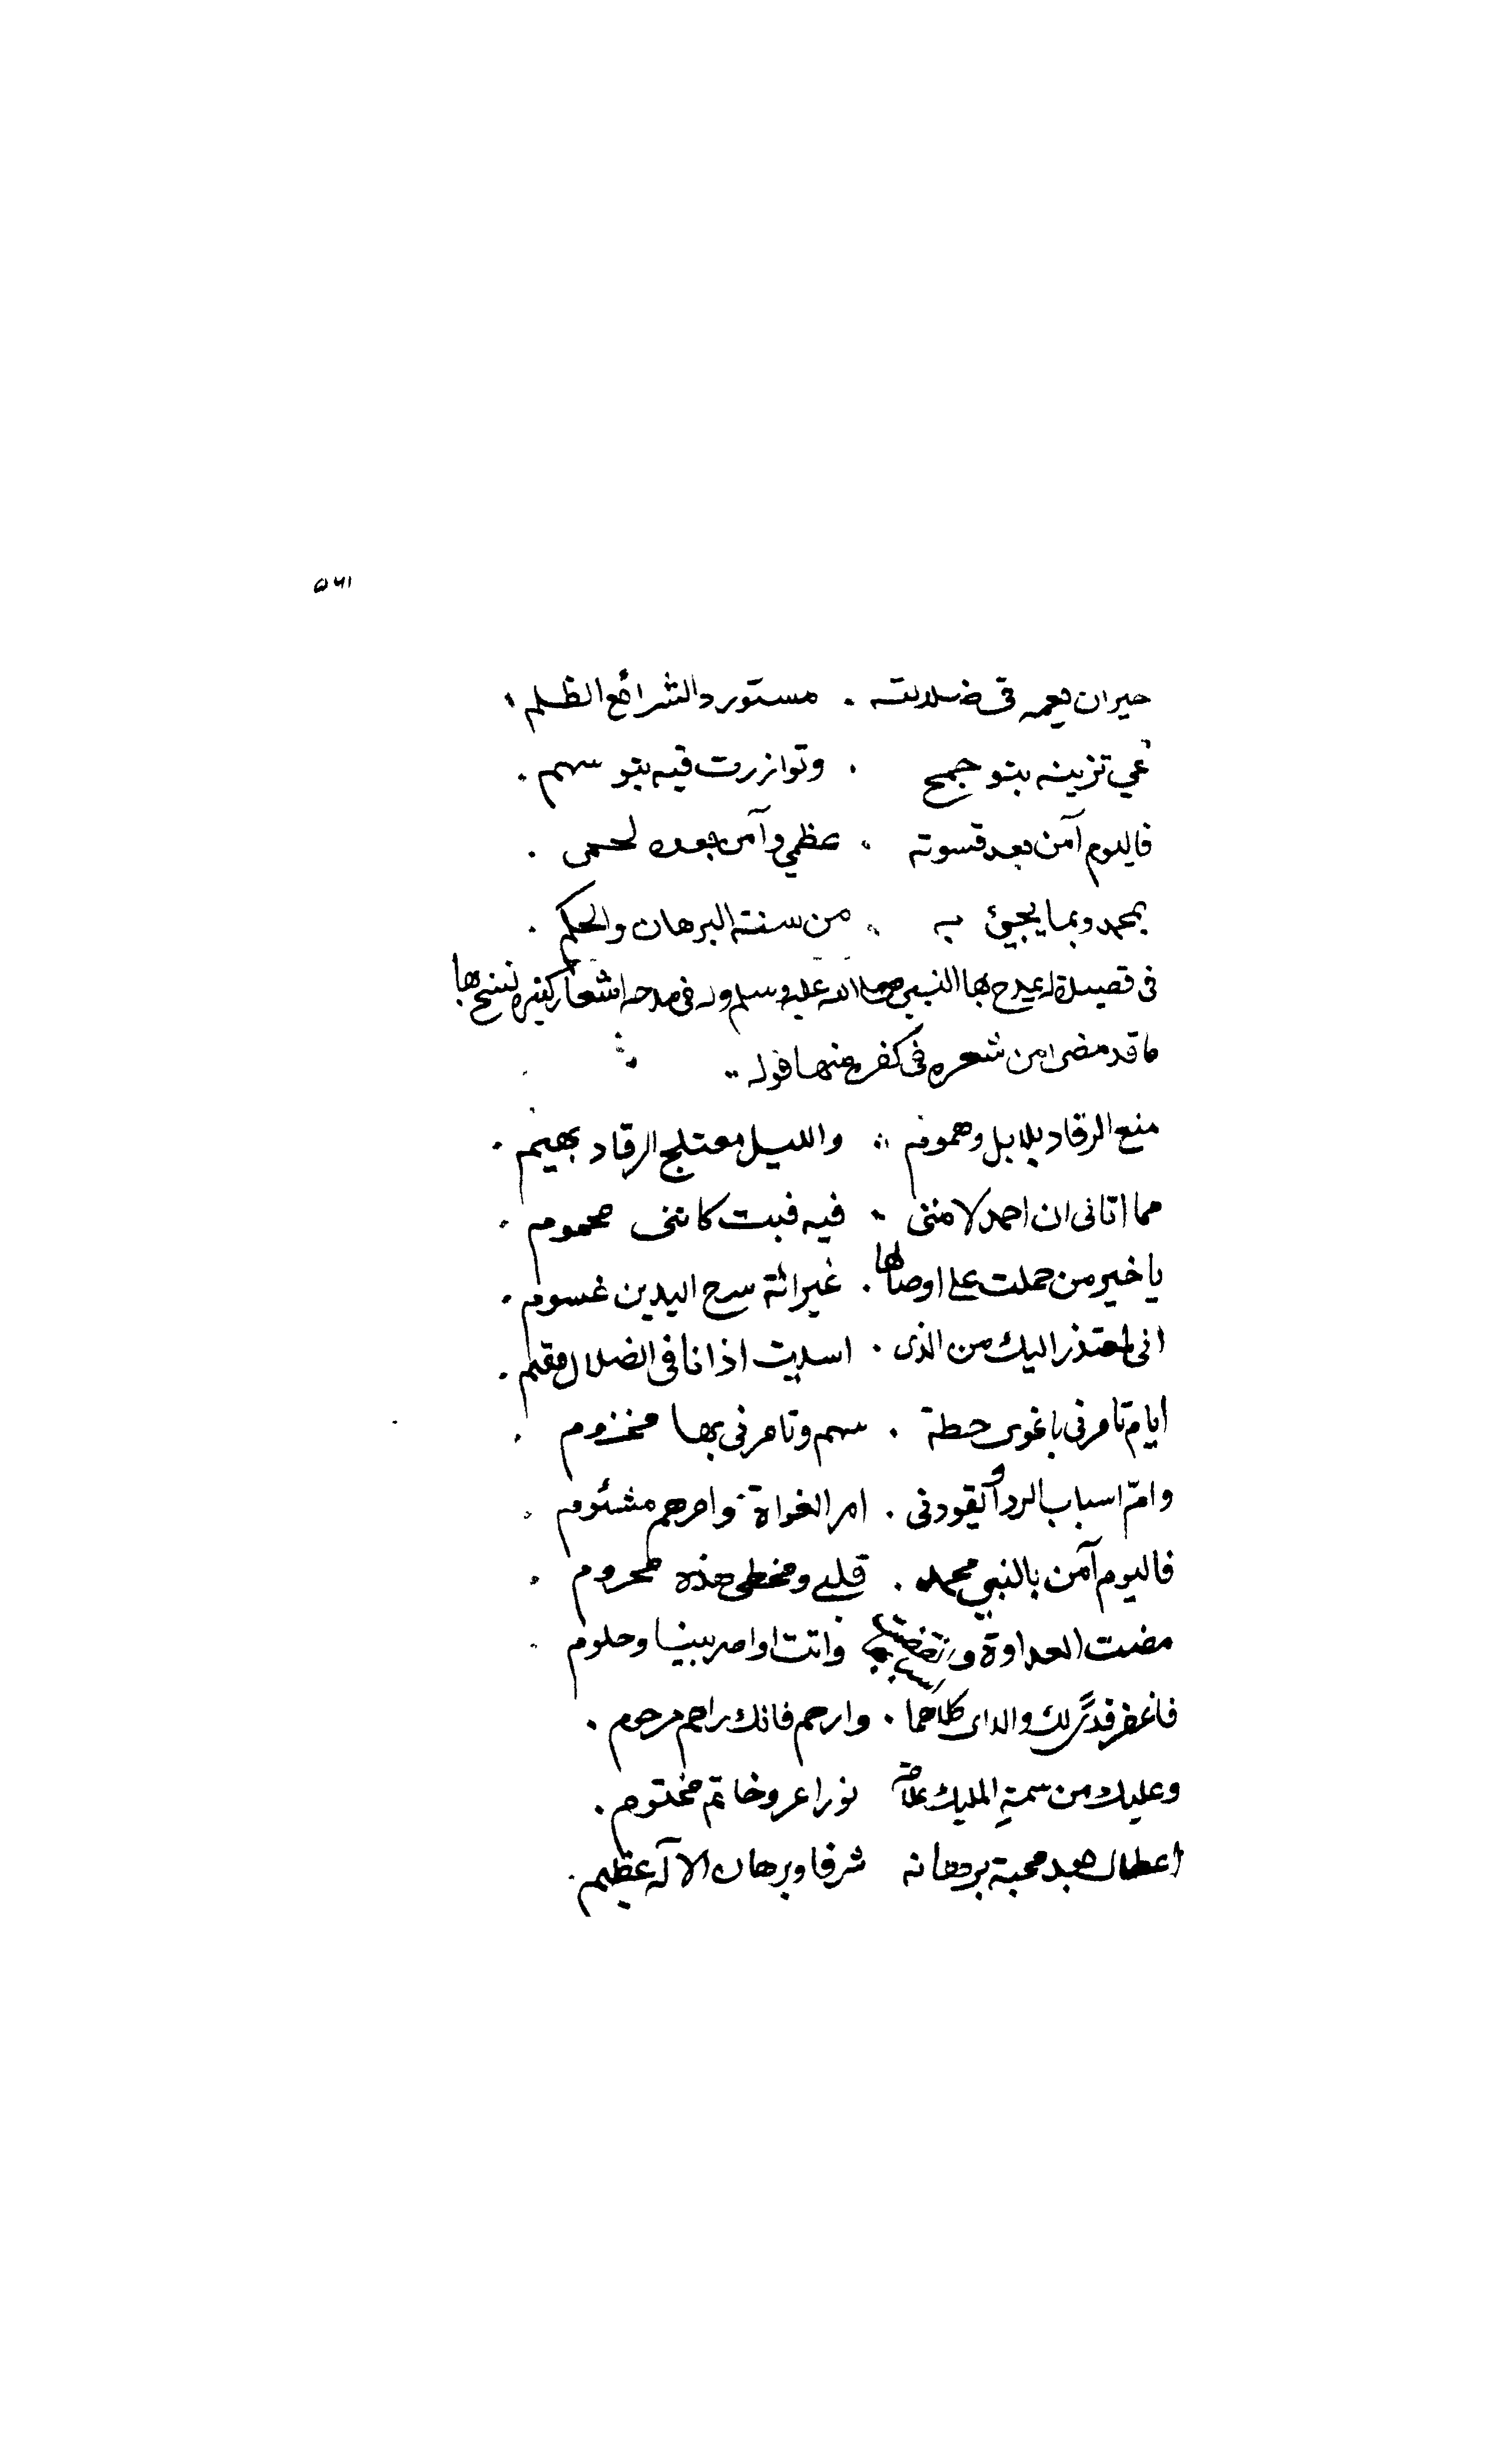 ٥٦١
حيران يعمه فى ضلالته . مستوردا لشرائع الظلم
عمي تزينه بنو جمح . وتوازرت فيه بنو سهم .
فاليوم آمن بعد قسوته . عظمي وآمن بعده لحمى .
بمحمد وبما يجيئ به . من سنته البرهان والحكم .
فى قصيدة له يمدح بها النبى صلى الله عليه وسلم وله فى مدحه اشعار كثيره نسخ بها
ما قد مضى من شعره فى كفره منها قوله ..
منع الرقاد بلابل وهموم . والليل معتلج الرقاد بهيم .
مما اتانى ان احمد لامنى . فيه فبت كاننى محموم .
يا خير من حملت على اوصالها . غيرانة سرح اليدين غسوم .
انى لمعتذر اليك من الذى . اسديت اذ انا فى الضلال مقيم .
ايام تامرنى باغوى خطة . سهم وتامرنى بها مخزوم .
وامّر اسباب الردا ويقودنى . امر الغواة وامرهم مشئوم .
فاليوم آمن بالنبي محمد . قلبى ومخطى هذه محروم .
مضت العداوة وانقضت اسبابها واتت اواصر بيننا وحلوم
فاغفر فدًى لك والداى كلاهما . وارحم فانك راحم مرحوم .
وعليك من سمةِ المليك علامة نور اغر وخاتم مختوم .
اعطاك بعد محبة برهانه شرفا وبرهان الاله عظيم .